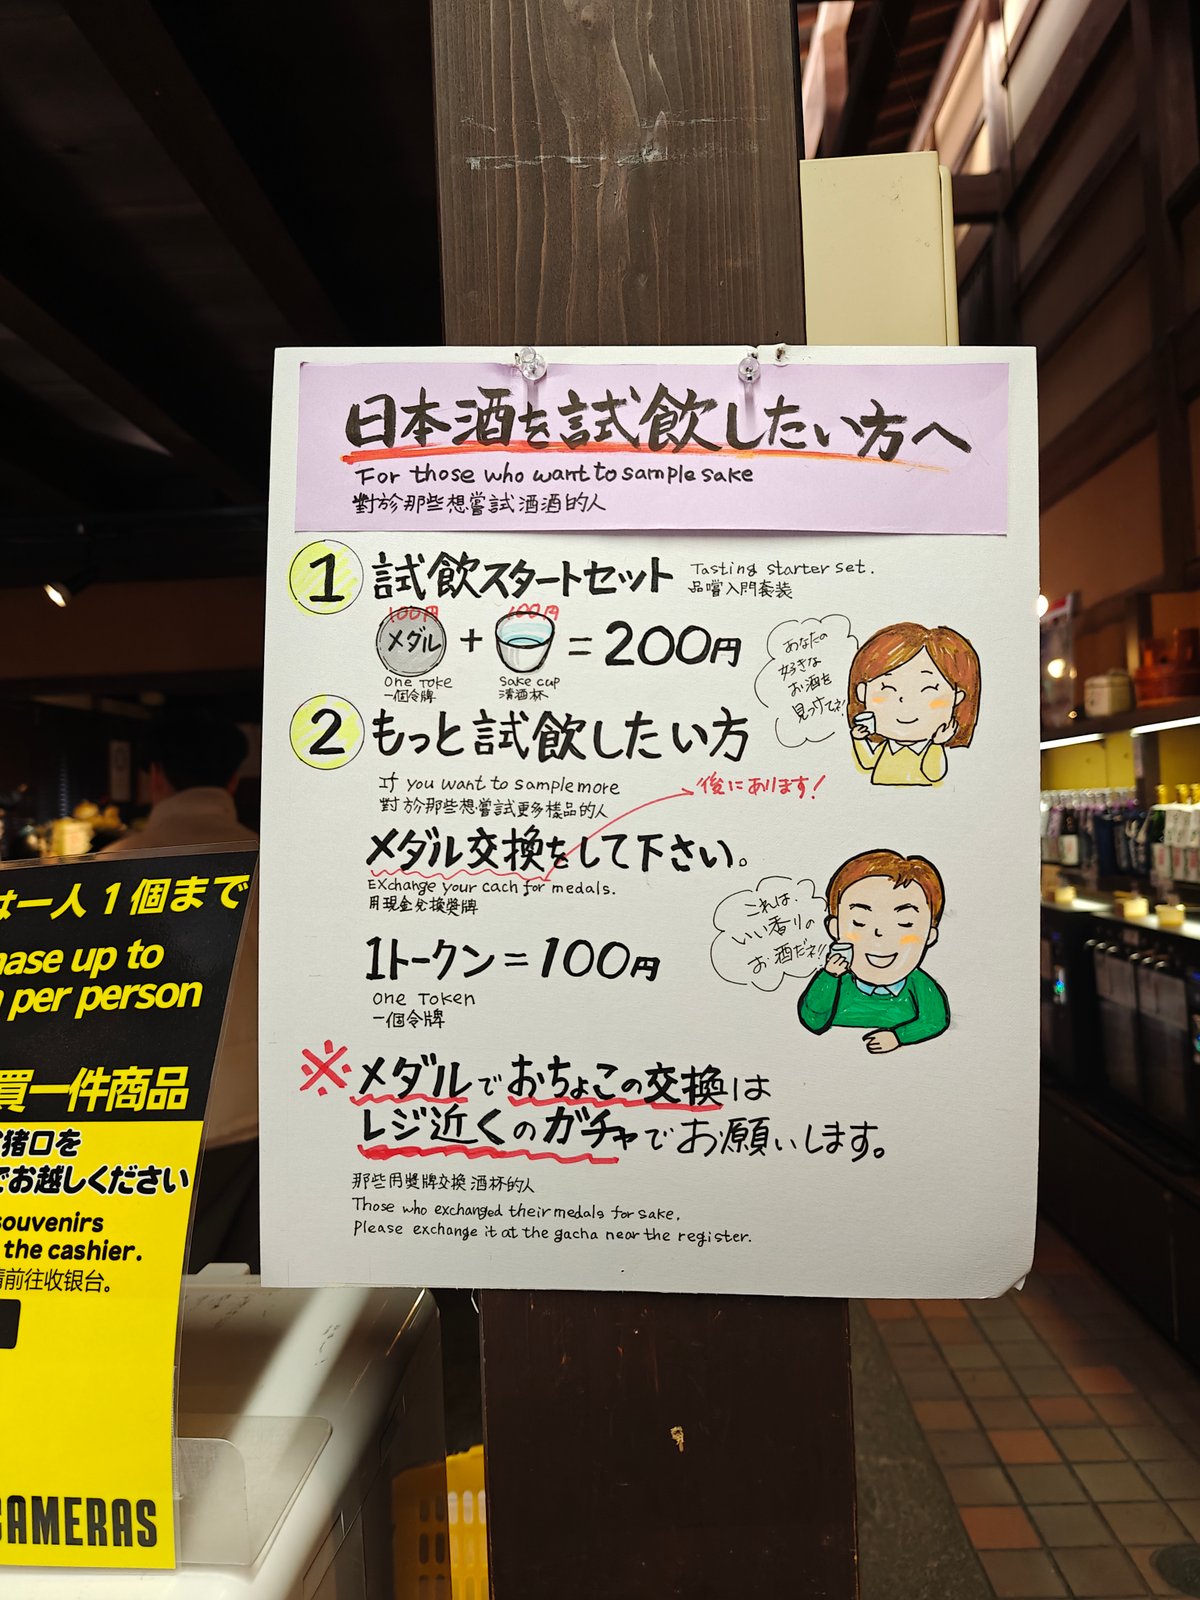 日本酒を試飲したい方へ
For those who want to sample sake
對於那些想嘗試酒酒的人
1 試飲スタートセット Tasting starter set.
品嚐入門套装
100円 100円
メダル + = 200円
One Toke Sake cup
一個令牌 清酒杯
あなたの
好きな
お酒を
見つけてネ!
2 もっと試飲したい方
If you want to sample more
對於那些想嘗試更多樣品的人
後にあります!
メダル交換をして下さい。
EXchange your cach for medals.
用現金兌換獎牌
これは、
いい香りの
お酒だネ!!
1トークン=100円
One Token
一個令牌
※メダルでおちょこの交換は
レジ近くのガチャでお願いします。
那些用獎牌交換酒杯的人
Those who exchanged their medals for sake.
Please exchange it at the gacha near the register.
は一人1個まで
hase up to
per person
買一件商品
猪口を
でお越しください
souvenirs
the cashier.
前往收银台。
CAMERAS